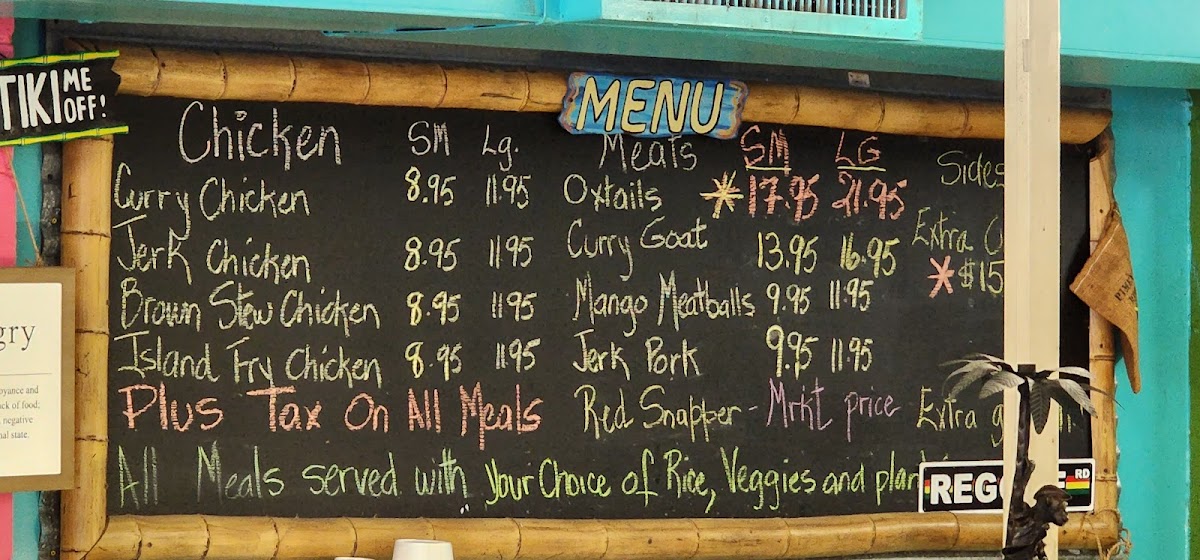 TIKI ME OFF!
MENU
Chicken SM Lg.
Curry Chicken 8.95 11.95
Jerk Chicken 8.95 11.95
Brown Stew Chicken 8.95 11.95
Island Fry Chicken 8.95 11.95
Plus Tax On All Meals
Meats SM LG
Oxtails * 17.95 21.95
Curry Goat 13.95 16.95
Mango Meatballs 9.95 11.95
Jerk Pork 9.95 11.95
Red Snapper - Mrkt price
Sides
Extra
* $15
Extra
All Meals served with your Choice of Rice, Veggies and plan
REGGAE RD
gry
oyance and
ck of food;
negative
nal state.